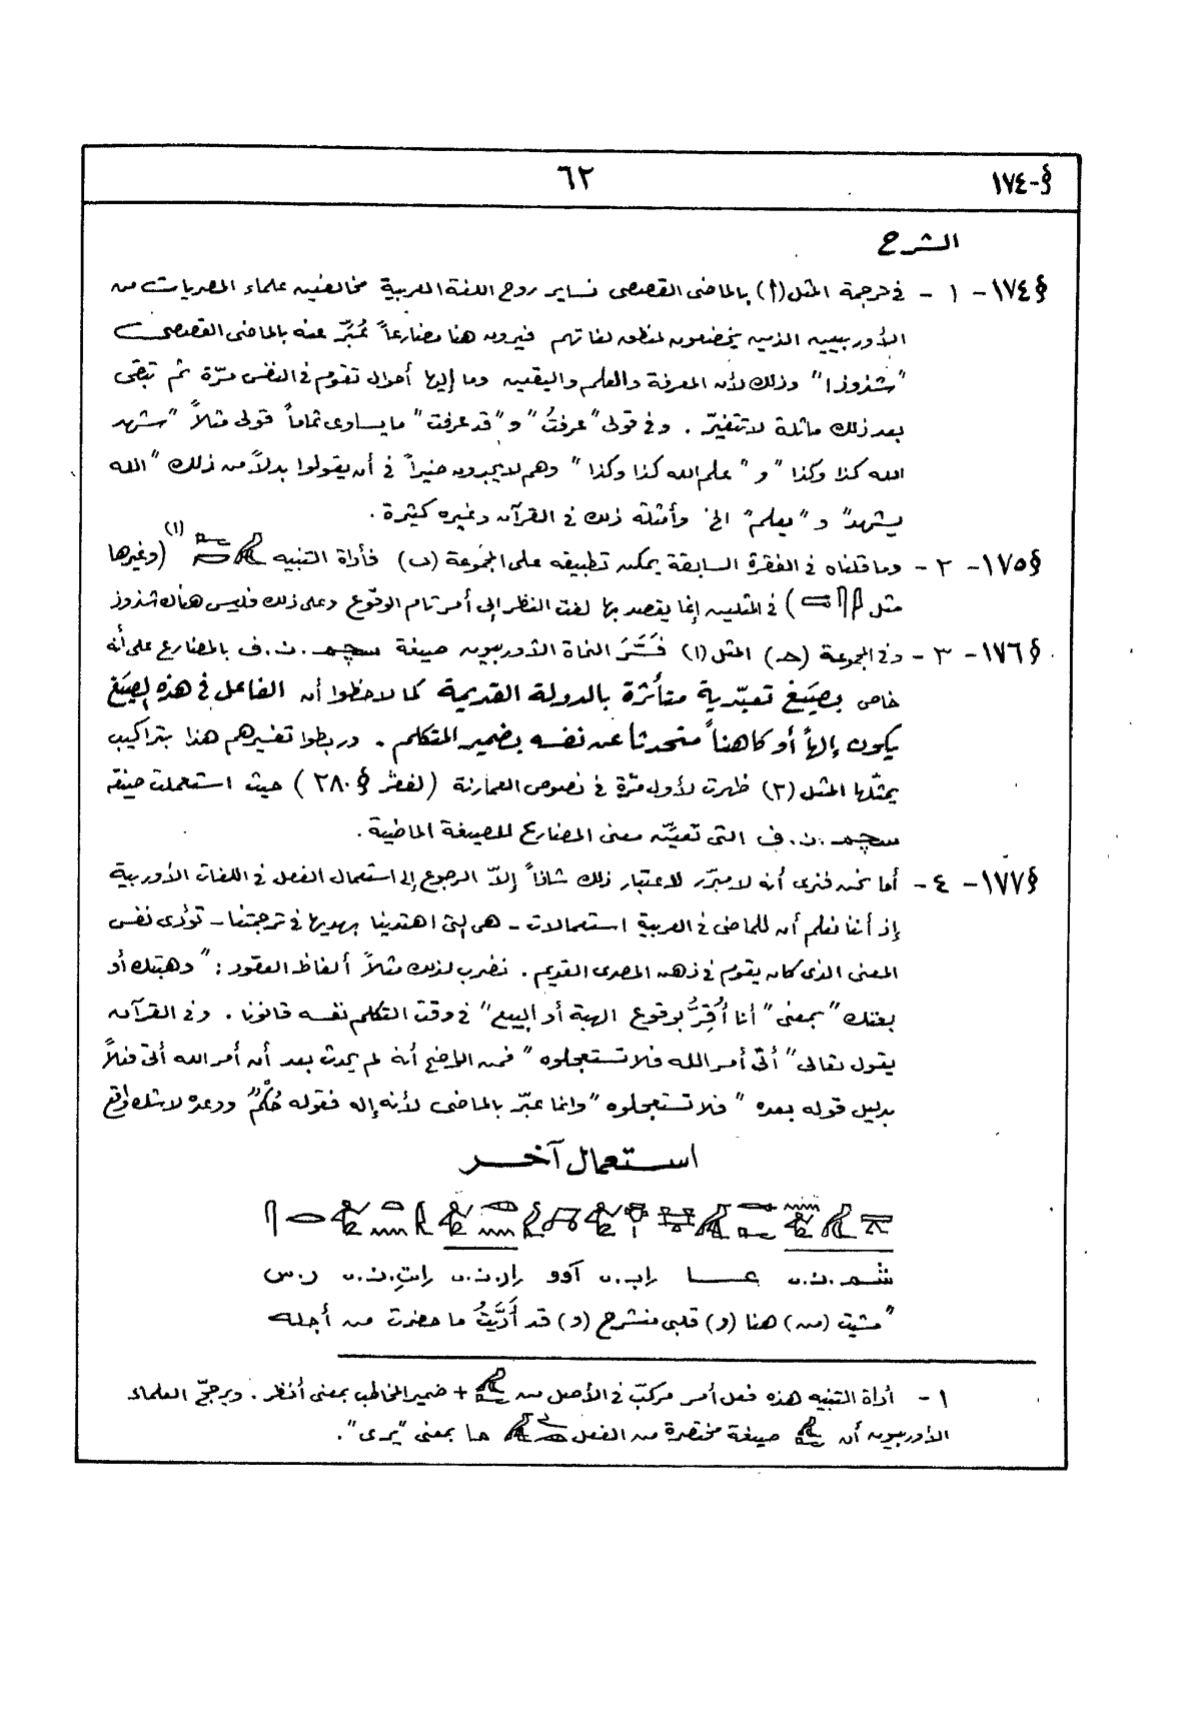 §-١٧٤
٦٢
الشرح
§١٧٤- ١ - فى ترجمة المثل (أ) بالماضى القصصى نساير روح اللغة العربية مخالفين علماء المصريات من
الأوربيين الذين يخضعون لمنطق لغاتهم فيرون هنا مضارعاً عُبّر عنه بالماضى القصصى
"شذوذا" وذلك لأن المعرفة والعلم واليقين وما إليها أحوال تقوم فى النفس مرّة ثم تبقى
بعد ذلك ماثلة لا تتغيّر . وفى قولى "عرفتُ" و "قد عرفت" ما يساوى تماماً قولى مثلاً "شهد
الله كذا وكذا" و "علم الله كذا وكذا" وهم لا يجدون ضيراً فى أن يقولوا بدلاً من ذلك "الله
يشهد" و "يعلم" الخ وأمثلة ذلك فى القرآن وغيره كثيرة .
§١٧٥- ٢ - وما قلناه فى الفقرة السابقة يمكن تطبيقه على المجموعة (ب) فأداة التنبيه (١) (وغيرها
مثل ) فى المثلين إنما يقصد بها لفت النظر إلى أمر تام الوقوع وعلى ذلك فليس هناك شذوذ
§١٧٦- ٣ - وفى المجموعة (حـ) المثل (١) فَسَّرَ النحاة الأوربيون صيغة سچم . ن . ف بالمضارع على أنه
خاص بصِيَغ تعبّدية متأثرة بالدولة القديمة كما لاحظوا أن الفاعل فى هذه الصِيَغ
يكون إلهاً أو كاهناً متحدثاً عن نفسه بضمير المتكلم . وربطوا تفسيرهم هذا بتراكيب
يمثّلها المثل (٢) ظهرت لأول مَرّة فى نصوص العمارنة ( § ٢٨٠) حيث استعملت صيغة
سچم . ن . ف التى تعيّن معنى المضارع للصيغة الماضية .
§١٧٧- ٤ - أما نحن فنرى أنه لا مبرّر لاعتبار ذلك شاذاً إلاّ الرجوع إلى استعمال الفعل فى اللغات الأوربية
إذ أننا نعلم أن للماضى فى العربية استعمالات - هى التى اهتدينا بهديها فى ترجمتنا - تؤدى نفس
المعنى الذى كان يقوم فى ذهن المصرى القديم . نضرب لذلك مثلاً ألفاظ العقود : "وهبتك أو
بعتك" بمعنى "أنا أُقِرُّ بوقوع الهبة أو البيع" فى وقت التكلم نفسه قانونا . وفى القرآن
يقول تعالى "أتى أمر الله فلا تستعجلوه" فمن الواضح أنه لم يحدث بعد أن أمر الله أتى فعلاً
بدليل قوله بعده "فلا تستعجلوه" وانما عبّر بالماضى لأنه إله فقوله حُكْمٌ ووعده لا شك واقع
استعمال آخر
شم . ن . ى عا راب . ى آوو رار . ن . ى راتِ . ن . ى ر . س
"مشيت (من) هنا (و) قلبى منشرح (و) قد أَدَّيْتُ ما حضرت من أجله
١ - أداة التنبيه هذه فعل أمر مركبّ فى الأصل من + ضمير المخاطب بمعنى أنظر . ويرجّح العلماء
الأوربيون أن صيغة مختصرة من الفعل ما بمعنى "يرى" .